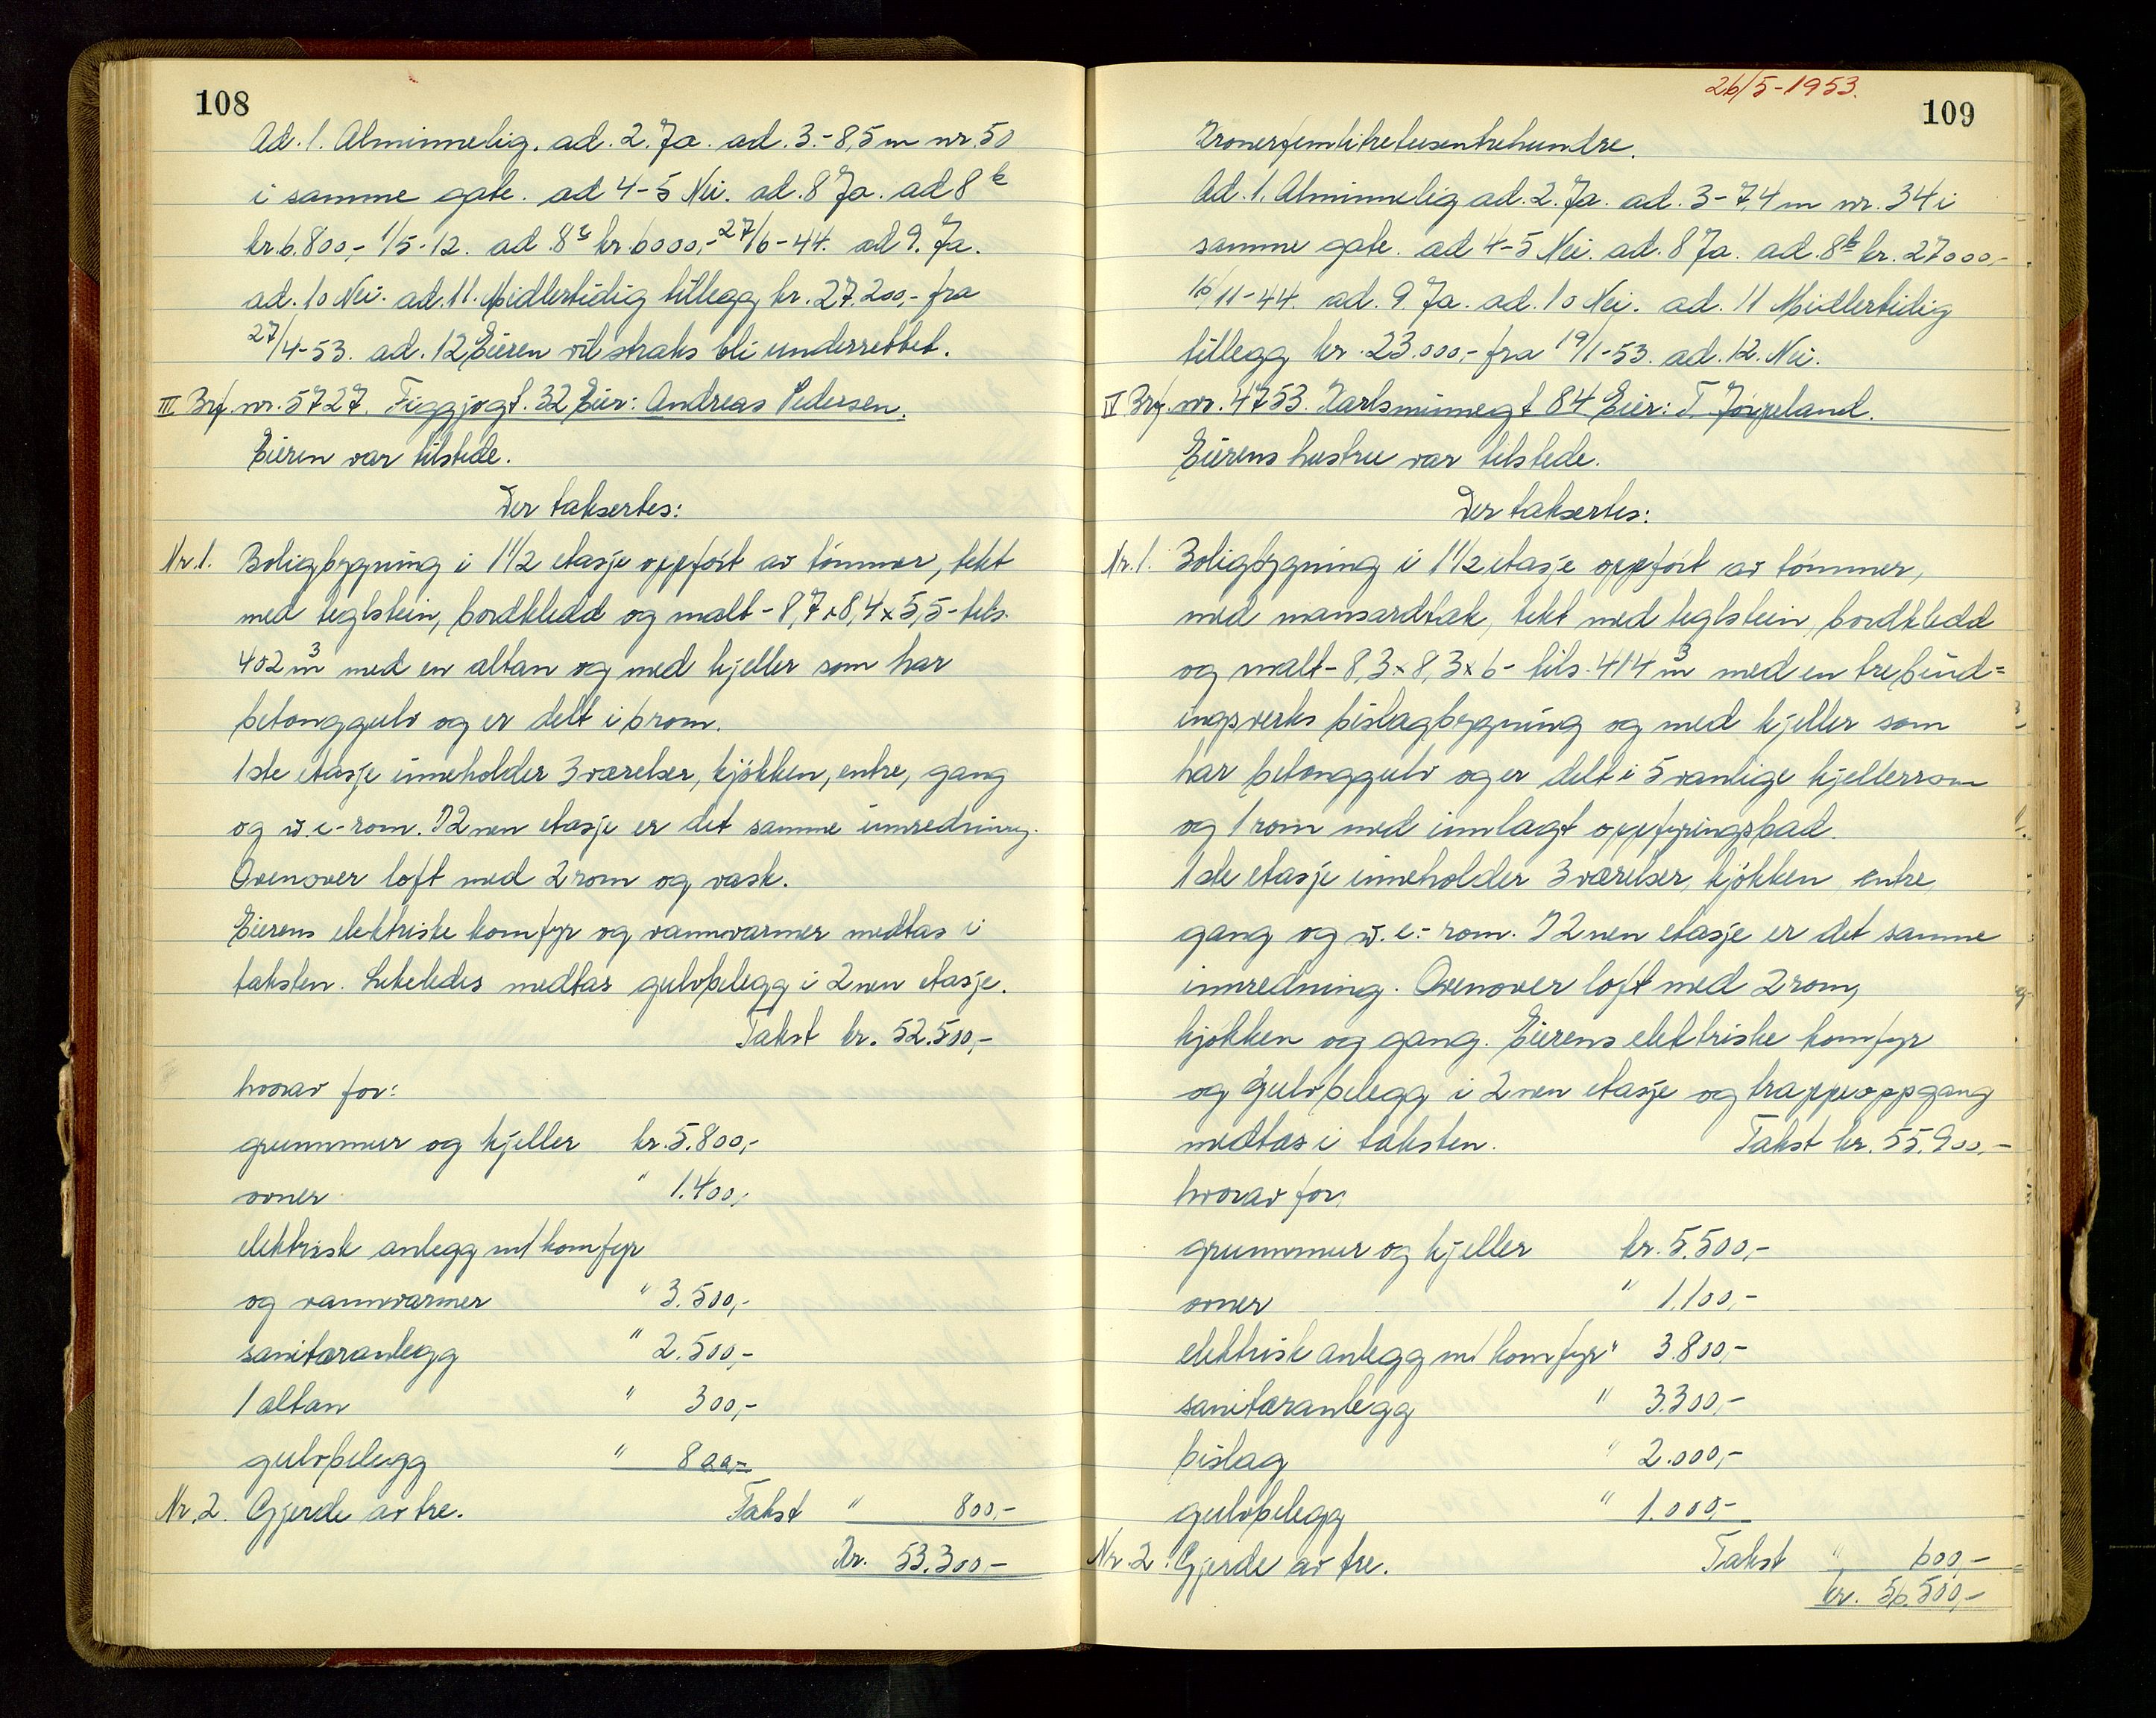 108
Ad. 1. Alminnelig. ad. 2. Ja. ad. 3.- 8,5 m nr. 50
i samme gate. ad 4-5 Nei. ad. 8 Ja. ad 8 b
kr. 6.800,- 1/5-12. ad 8 c kr. 6000,- 27/6-44. ad 9. Ja.
ad. 10 Nei. ad. 11. Midlertidig tillegg kr. 27.200,- fra
27/4-53. ad. 12 Eieren vil straks bli underrettet.
III Brf. nr. 5727. Figgjogt. 32 Eier: Andreas Pedersen.
Eieren var tilstede.
Der taksertes:
Nr. 1. Boligbygning i 1 1/2 etasje oppført av tømmer, tekt
med teglstein, bordkledd og malt - 8,7 x 8,4 x 5,5 - tils.
402 m3 med en altan og med kjeller som har
betonggulv og er delt i 6 rom.
1ste etasje inneholder 3 værelser, kjøkken, entre, gang
og w.c-rom. I 2nen etasje er det samme innredning.
Ovenover loft med 2 rom og vask.
Eierens elektriske komfyr og vannvarmer medtas i
taksten. Likeledes medtas gulvbelegg i 2nen etasje.
Takst kr. 52.500,-
hvorav for:
grunnmur og kjeller kr. 5.800,-
ovner " 1.400,-
elektrisk anlegg m/ komfyr
og vannvarmer " 3.500,-
sanitæranlegg " 2.500,-
1 altan " 300,-
gulvbelegg " 800,-
Nr. 2. Gjerde av tre. Takst " 800,-
Kr. 53.300,-
26/5-1953.
109
Kronerfemtitretusentrehundre.
Ad. 1. Alminnelig ad. 2. Ja. ad. 3 - 7,4 m nr. 34 i
samme gate. ad 4-5 Nei. ad. 8 Ja. ad. 8 b kr. 27000,-
16/11-44. ad. 9. Ja. ad. 10 Nei. ad. 11 Midlertidig
tillegg kr. 23.000,- fra 19/1-53. ad. 12. Nei.
IV Brf. nr. 4753. Karlsminnegt 84 Eier: T. Jørpeland.
Eierens hustru var tilstede.
Der taksertes:
Nr. 1. Boligbygning i 1 1/2 etasje oppført av tømmer,
med mansardtak, tekt med teglstein, bordkledd
og malt - 8,3 x 8,3 x 6 - tils. 414 m3 med en trebind=
ingsverks bislagbygning og med kjeller som
har betonggulv og er delt i 5 vanlige kjellerrom
og 1 rom med innlagt oppfyringsbad.
1ste etasje inneholder 3 værelser, kjøkken, entre,
gang og w.c.- rom. I 2nen etasje er det samme
innredning. Ovenover loft med 2 rom,
kjøkken og gang. Eierens elektriske komfyr
og gulvbelegg i 2nen etasje og trappeoppgang
medtas i taksten. Takst kr. 55.900,-
hvorav for:
grunnmur og kjeller kr. 5.500,-
ovner " 1.100,-
elektrisk anlegg m/ komfyr " 3.800,-
sanitæranlegg " 3.300,-
bislag " 2.000,-
gulvbelegg " 1.000,-
Nr. 2. Gjerde av tre. Takst " 600,-
kr. 56.500,-